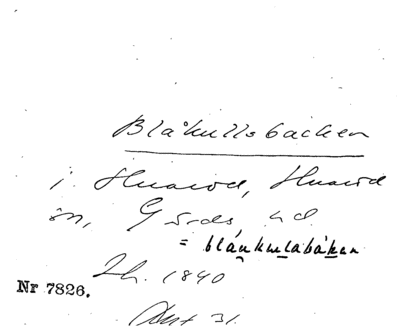 Blåkullsbacken
i Huaröd, Huaröd
sn, Gärds hd.
= bláu̯kulabákan
Lh. 1840
Nr 7826.
31.